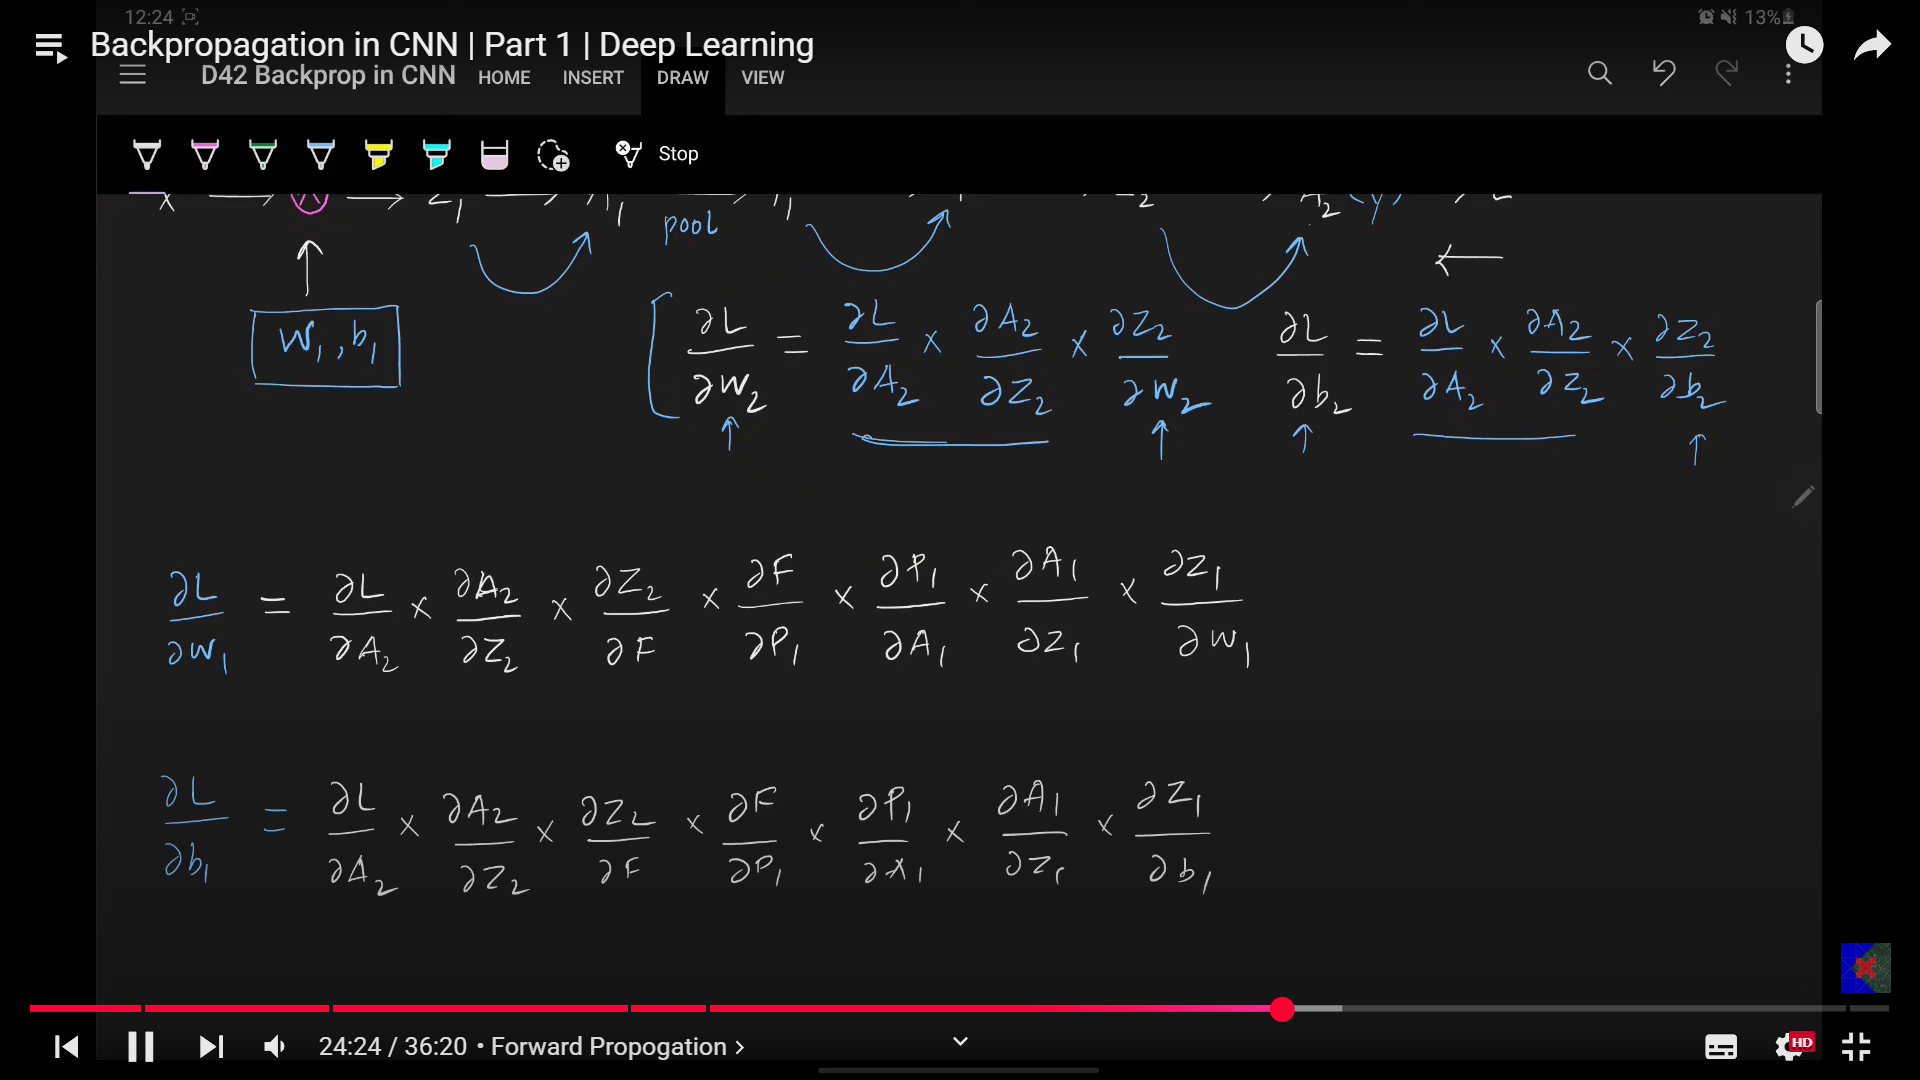 12:24 13%
Backpropagation in CNN | Part 1 | Deep Learning
D42 Backprop in CNN HOME INSERT DRAW VIEW
Stop
pool
W₁, b₁
∂L/∂W₂ = ∂L/∂A₂ × ∂A₂/∂Z₂ × ∂Z₂/∂W₂ ∂L/∂b₂ = ∂L/∂A₂ × ∂A₂/∂Z₂ × ∂Z₂/∂b₂
∂L/∂W₁ = ∂L/∂A₂ × ∂A₂/∂Z₂ × ∂Z₂/∂F × ∂F/∂P₁ × ∂P₁/∂A₁ × ∂A₁/∂Z₁ × ∂Z₁/∂W₁
∂L/∂b₁ = ∂L/∂A₂ × ∂A₂/∂Z₂ × ∂Z₂/∂F × ∂F/∂P₁ × ∂P₁/∂A₁ × ∂A₁/∂Z₁ × ∂Z₁/∂b₁
24:24 / 36:20 • Forward Propogation
HD